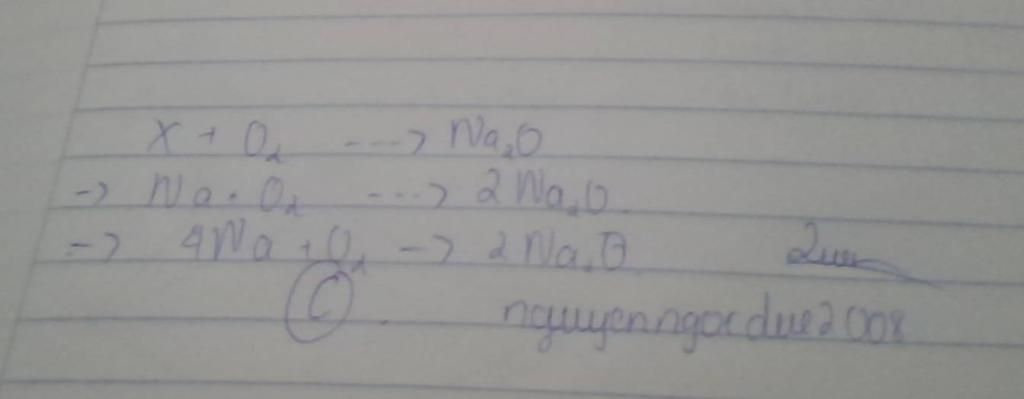 X + O₂ ---> Na₂O
-> Na + O₂ ---> 2Na₂O
-> 4Na + O₂ -> 2Na₂O
C
nguyenngocdue2008